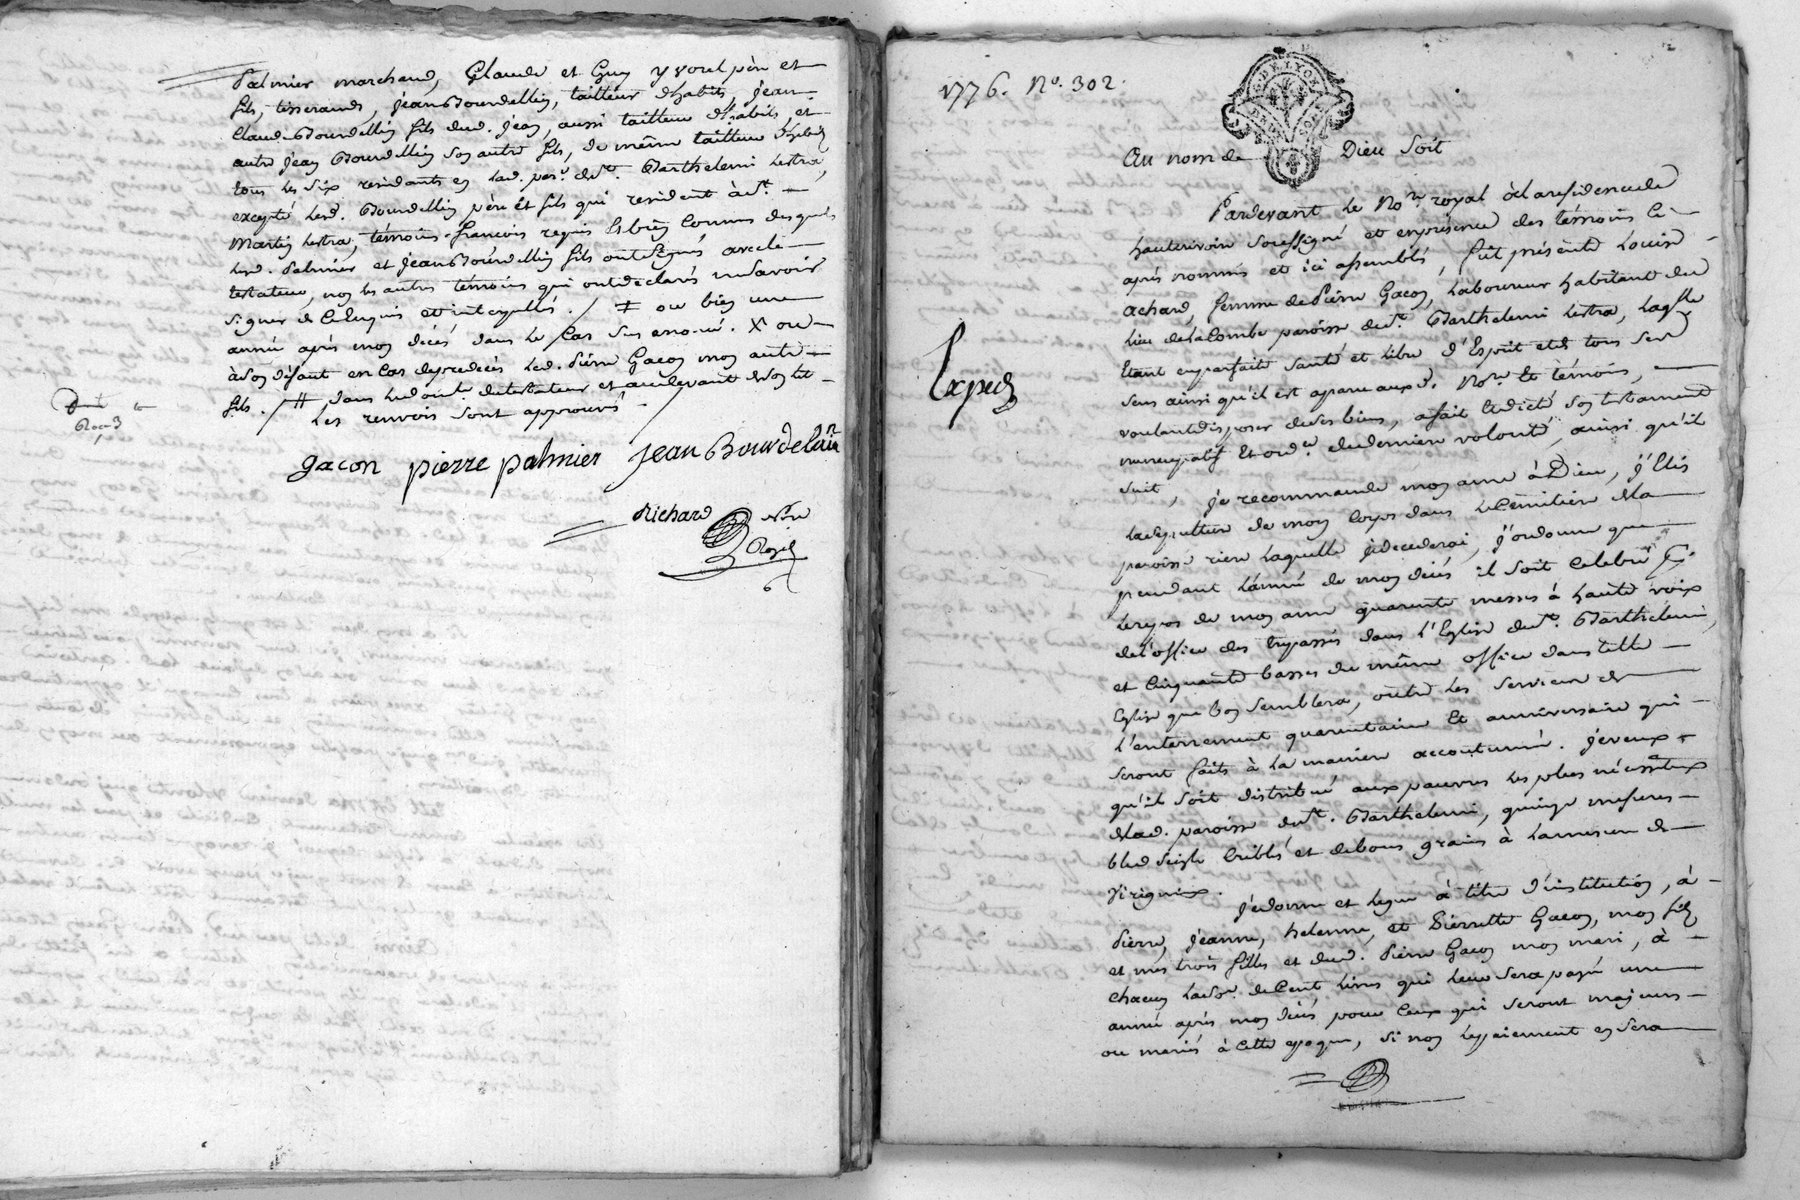 Palmier marchand, Claude et Guy yvorel père et
fils, tisserands, jean Bourdellin, tailleur d'habits, jean
Claude Bourdellin fils dud. jean, aussi tailleur d'habits, et
autre jean Bourdellin son autre fils, de même tailleur d'habits
tous les six residants en lad. par.e de St. Barthelemi Lestra,
excepté lesd. Bourdellin père et fils qui resident à St.
Martin Lestra, témoins francois requis et bien connus desquels
lesd. Palmier et jean Bourdellin fils ont signés avec le
testateur, non les autres témoins qui ont declarés ne savoir
signer de ce enquis et interpellés. / ‡ ou bien une
année après mon décés dans le cas sus enoncé. X ou
à son défaut en cas de predecés led. Pierre Gacon mon autre
fils. / # dans led. testateur et au devant de son lit
Les renvois sont approuvés
gacon pierre palmier jean Bourdelin
Richard No.re
Royal
1776. No. 302.
G. DE LYON
DEUX SOLS
Au nom de Dieu soit
Pardevant le No.re royal à la residence de
hauterivoire soussigné et en presence des témoins ci
aprés nommés et ici assemblés, fut présente Louise
achard, femme de Pierre Gacon, laboureur habitant du
lieu de la Combe paroisse de St. Barthelemi Lestra, laq.lle
Etant en parfaite santé et libre d'Esprit et de tous ses
sens ainsi qu'il est aparu auxd. No.re et témoins,
voulant disposer de ses biens, a fait et dicté son testament
nuncupatif et ord.ce de derniere volonté, ainsi qu'il
suit, je recommande mon ame à Dieu, j'Elis
la sepulture de mon corps dans le Cimitiere de la
paroisse rière laquelle je decederai, j'ordonne que
pendant l'année de mon décés il soit celebré p.r
le repos de mon ame quarente messes à haute voix
de l'office des trepassés dans l'Eglise de St. Barthelemi,
et cinquante basses du même office dans telle
Eglise que bon semblera, outre les services de
l'enterrement quarentaine et anniversaire qui
seront faits à la maniere accoutumée. je veux
qu'il soit distribué aux pauvres les plus nécessiteux
de lad. paroisse de St. Barthelemi, quinze mesures
bled seigle criblé et de bons grains à la mesure de
Virigneux.
Expedié
je donne et legue à titre d'institution, à
Pierre, jeanne, helenne, et Pierrette Gacon, mon fils
et mes trois filles et dud. Pierre Gacon mon mari, à
chacun la som.e de cent livres qui leur sera payée une
année aprés mon décés pour ceux qui seront majeurs
ou mariés à cette epoque, si non le payement en sera